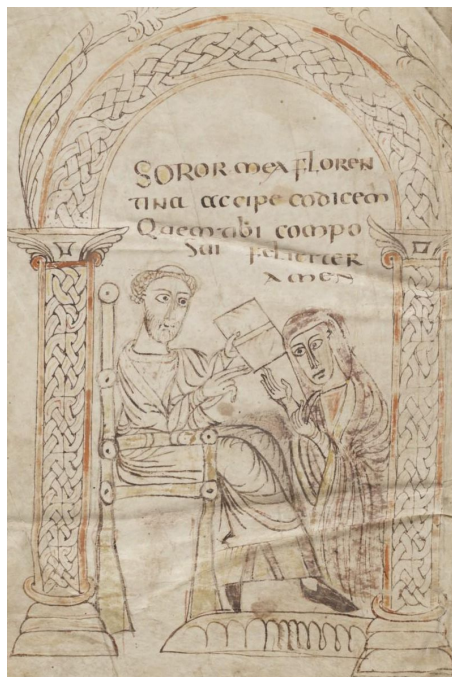 SOROR mea FLOREN
TINA accipe codicem
Quem tibi compo
sui feliciter
AMEN